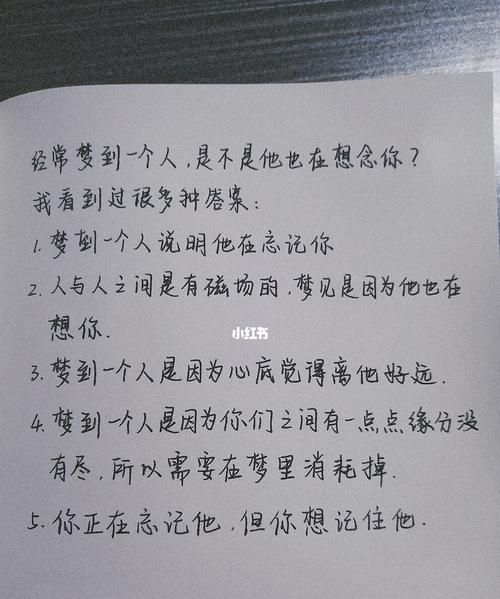 经常梦到一个人，是不是他也在想念你？
我看到过很多种答案：
1. 梦到一个人说明他在忘记你
2. 人与人之间是有磁场的，梦见是因为他也在
想你.
小红书
3. 梦到一个人是因为心底觉得离他好远.
4. 梦到一个人是因为你们之间有一点点缘分没
有尽，所以需要在梦里消耗掉.
5. 你正在忘记他，但你想记住他.